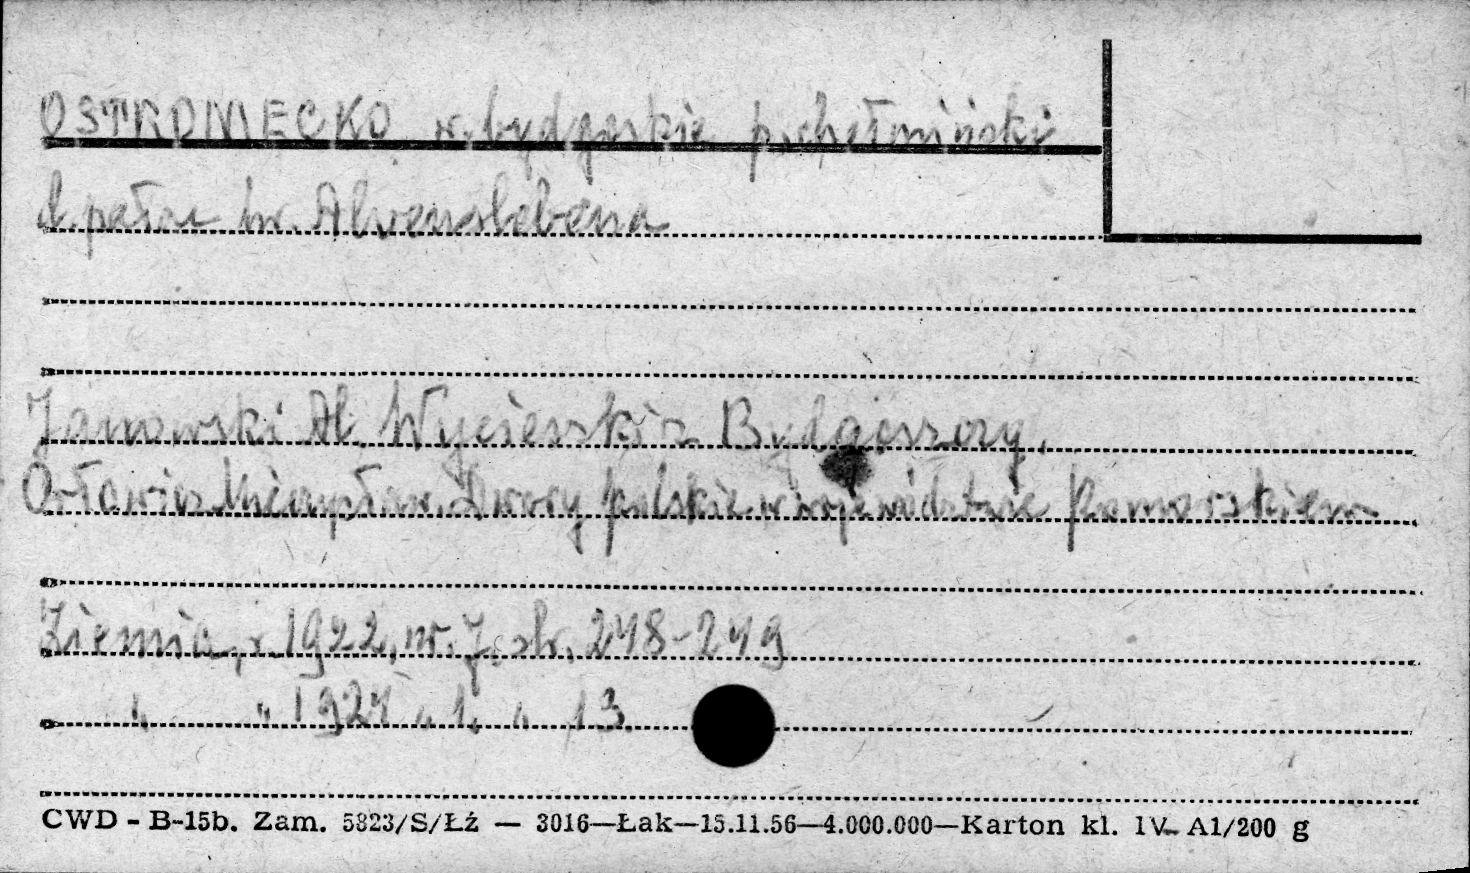 OSTROMECKO w. bydgoskie p. chełmiński
d. pałac hr. Alvenslebena
Janowski Al. Wycieczki z Bydgoszczy.
Orłowicz Mieczysław. Dwory polskie w województwie Pomorskiem
Ziemia, r. 1922, nr. 7. str. 248-249
" " 1924 " 1. " 13.
CWD - B-15b. Zam. 5823/S/Łź — 3016—Łak—15.11.56—4.000.000—Karton kl. IV A1/200 g